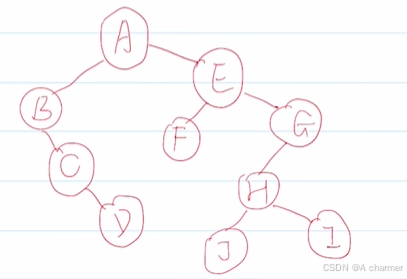 A
E
B
F
G
C
H
D
J
I
CSDN @A charmer